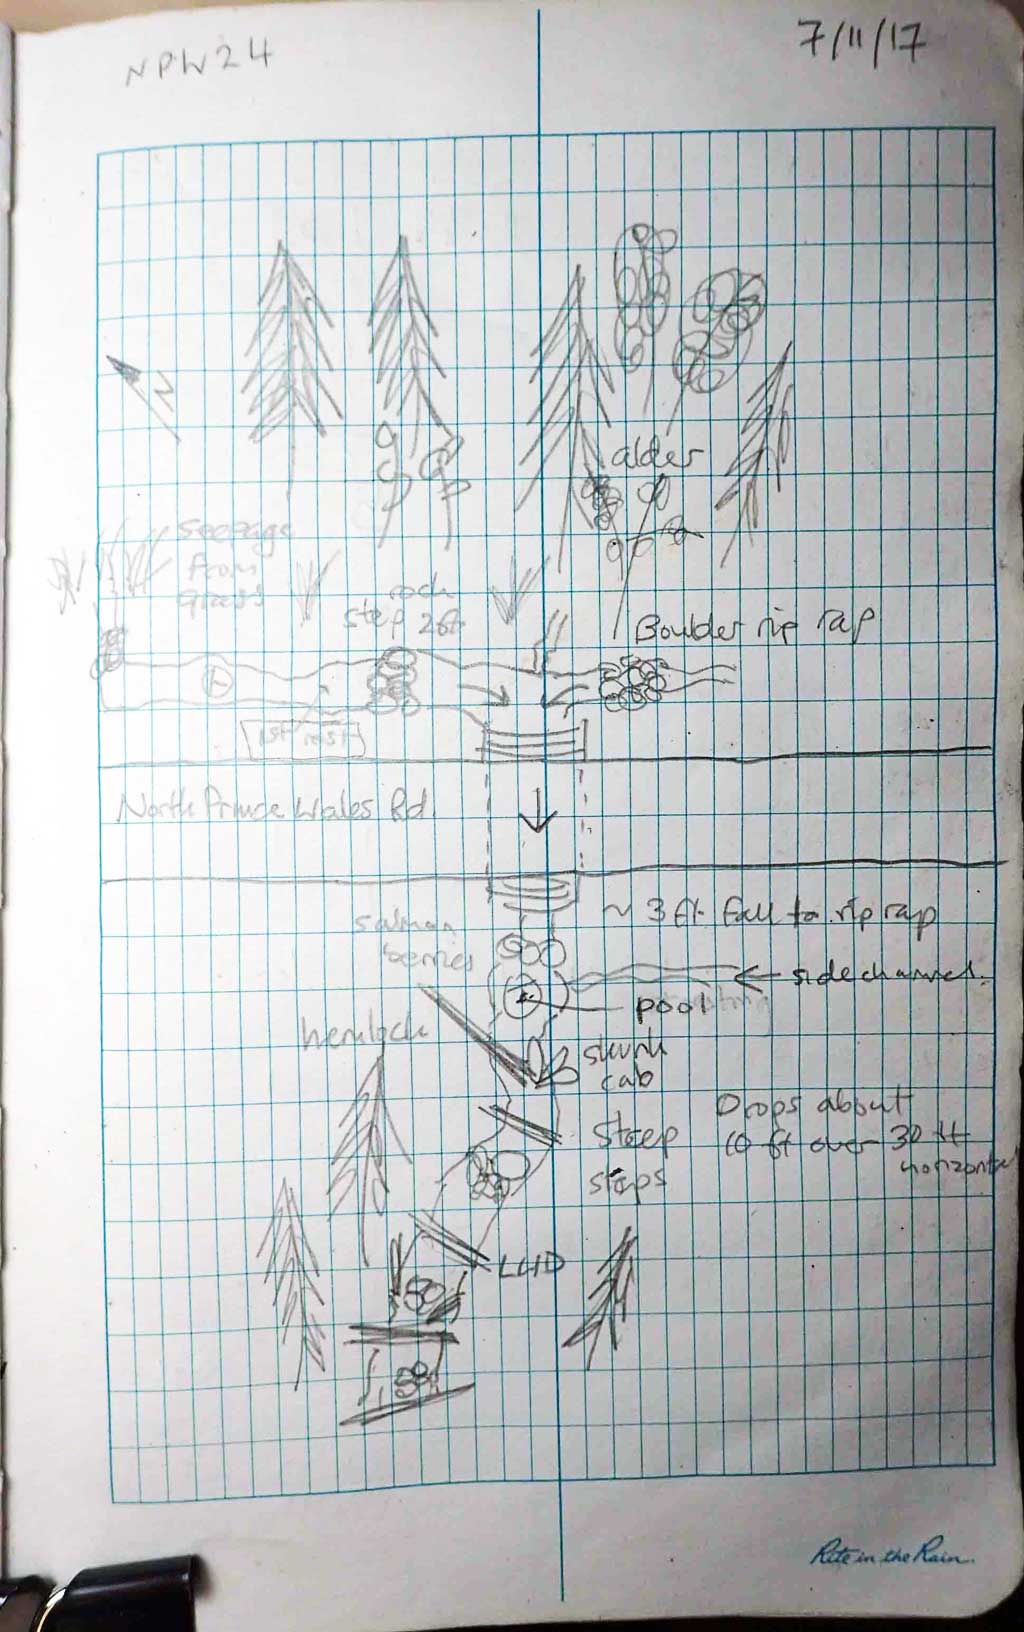 NPW24
7/11/17
N
alder
seepage
from
grass
rock
step 2ft
Boulder rip rap
1st
North Prince Wales Rd.
~ 3 ft. fall to rip rap
salmon
berries
side channel.
pool
hemlock
skunk
cab
Drops about
10 ft over 30 ft
horizontal
Steep
steps
LWD
Rite in the Rain